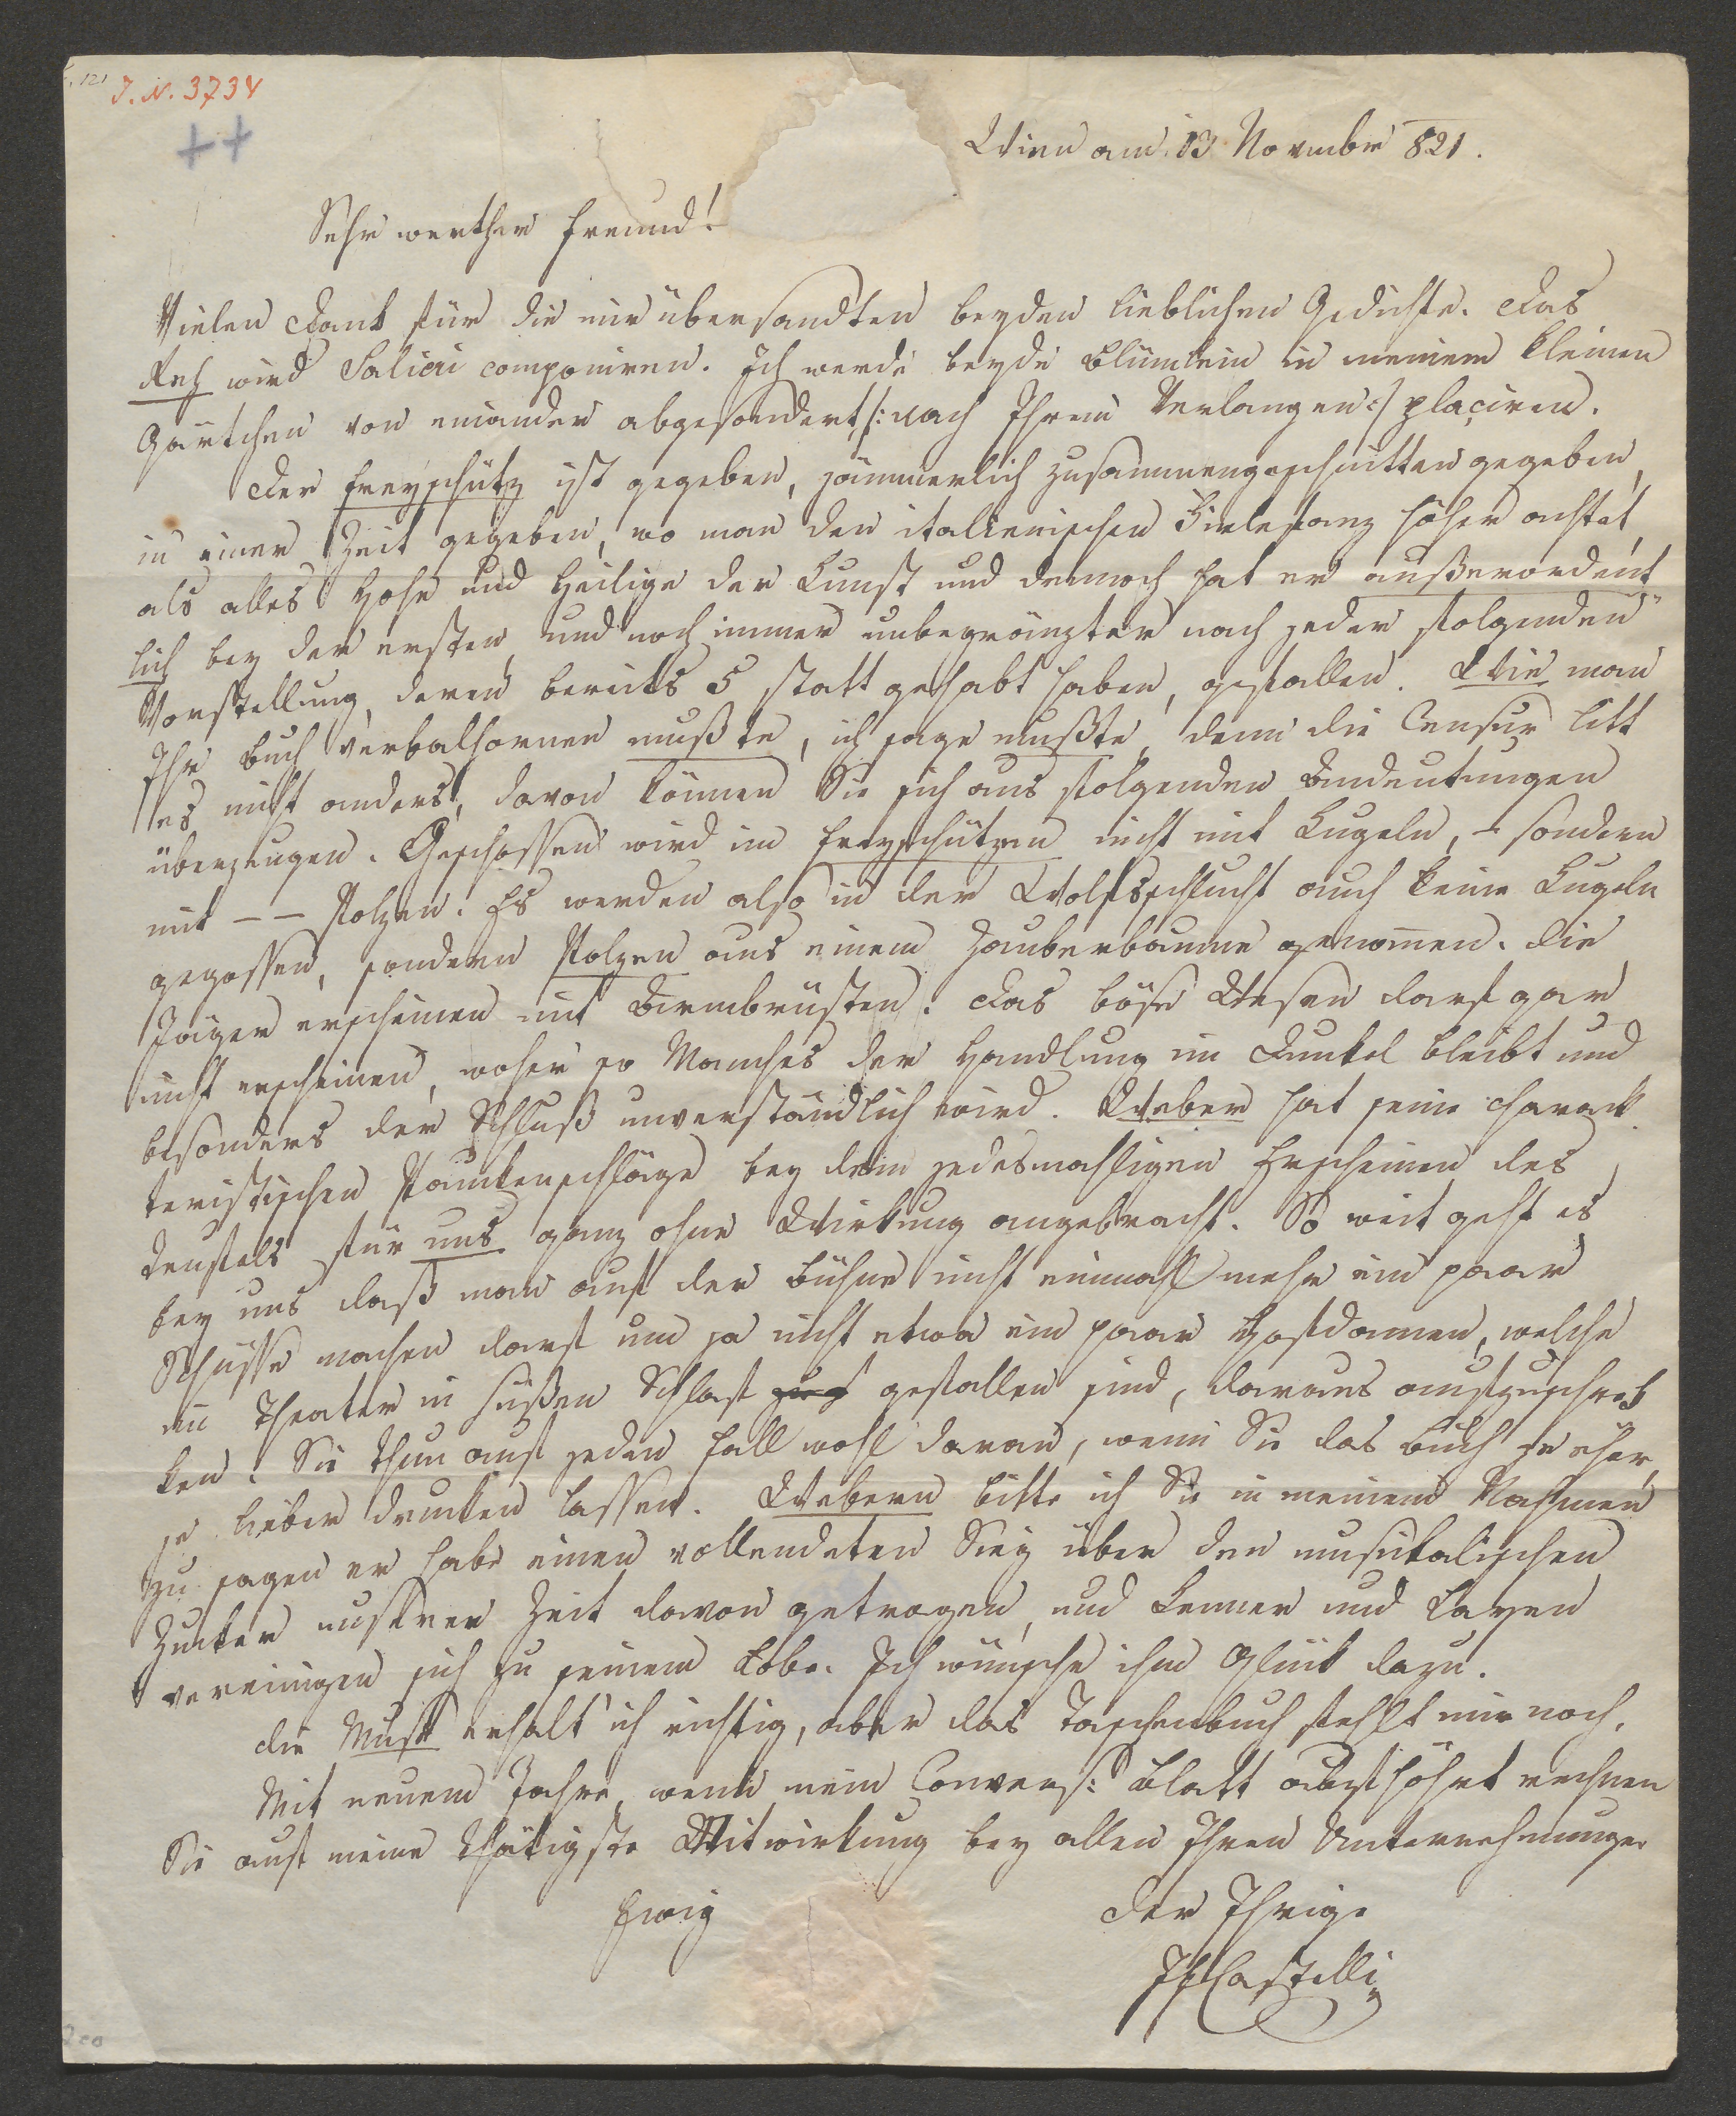 121
J. N. 3734
++
Wien am 13 November 821.
Sehr werther Freund!
Vielen Dank für die mir übersandten beyden lieblichen Gedichte. Das
Reh wird Salieri componiren. Ich werde beyde Blümlein in meinem kleinen
Gärtchen von einander abgesondert /: nach Ihrem Verlangen :/ plaçiren.
Der Freyschütz ist gegeben, jämmerlich zusammengeschnitten gegeben,
in einer Zeit gegeben, wo man den italienischen Firlefanz höher achtet,
als alles Hohe und Heilige der Kunst und dennoch hat er außerordent
lich bey der ersten, und noch immer unbegränzter nach jeder folgenden
Vorstellung, deren bereits 5 statt gehabt haben, gefallen. Wie man
Ihr Buch verbalhornen mußte, ich sage mußte, denn die Censur litt
es nicht anders, davon können Sie sich aus folgenden Andeutungen
überzeugen. Geschossen wird im Freyschützen nicht mit Kugeln, – sondern
mit – – Polzen. Es werden also in der Wolfsschlucht auch keine Kugeln
gegossen, sondern Polzen aus einem Zauberbaume genommen. Die
Jäger erscheinen mit Armbrüsten. Das böse Wesen darf gar
nicht erscheinen, woher so Manches der Handlung im Dunkel bleibt und
besonders der Schluß unverständlich wird. Weber hat seine charack
teristischen Paukenschläge bey dem jedesmahligen Erscheinen des
Teufels für uns ganz ohne Wirkung angebracht. So weit geht es
bey uns daß man auf der Bühne nicht einmahl mehr ein paar
Schüsse machen darf um ja nicht etwa ein paar Hofdamen, welche
im Theater in süßen Schlaf gefallen sind, daraus aufzuschrek
ken. Sie thun auf jeden Fall wohl daran, wenn Sie das Buch je eher,
je lieber drucken lassen. Webern bitte ich Sie in meinem Nahmen
zu sagen er habe einen vollendeten Sieg über den musikalischen
Zucker unsrer Zeit davon getragen, und Kenner und Layen
vereinigen sich zu seinem Lobe. Ich wünsche ihm Glück dazu.
Die Muse erhalt' ich richtig, aber das Taschenbuch fehlt mir noch.
Mit neuem Jahre, wenn mein Convers: Blatt aufhöhrt rechnen
Sie auf meine thätigste Mitwirkung bey allen Ihren Unternehmungen
Ewig
der Ihrige
JFCastelli